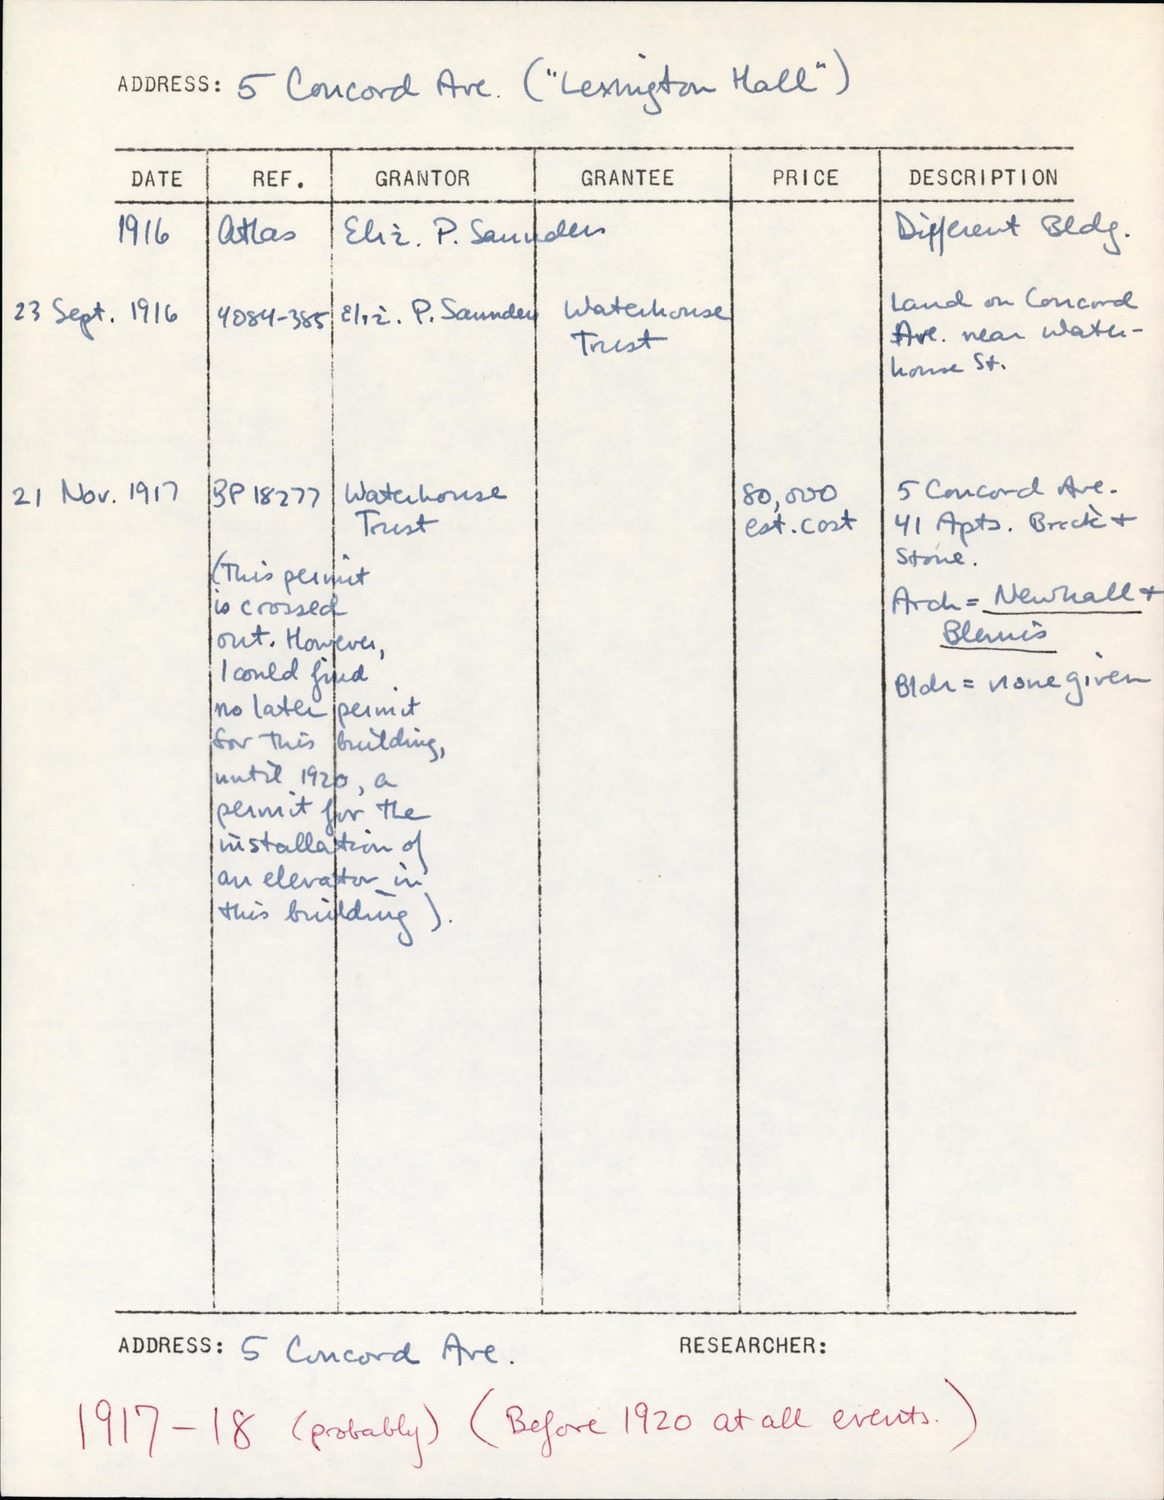 ADDRESS: 5 Concord Ave. ("Lexington Hall")
DATE REF. GRANTOR GRANTEE PRICE DESCRIPTION
1916 Atlas Eliz. P. Saunders Different Bldg.
23 Sept. 1916 4084-385 Eliz. P. Saunders Waterhouse Trust Land on Concord
Ave. near Water-
house St.
21 Nov. 1917 BP 18277 Waterhouse 80,000 5 Concord Ave.
Trust est. cost 41 Apts. Brick +
Stone.
(This permit
is crossed
out. However,
I could find
no later permit
for this building,
until 1920, a
permit for the
installation of
an elevator in
this building).
Arch = Newhall +
Blevins
Bldr = none given
ADDRESS: 5 Concord Ave. RESEARCHER:
1917-18 (probably) (Before 1920 at all events.)